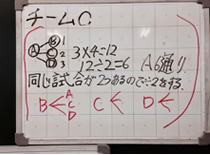 チームC
A B 1
C 2 3×4=12
D 3 12÷2=6 A6通り
同じ試合が2つあるので÷2をする。
B A C D C D